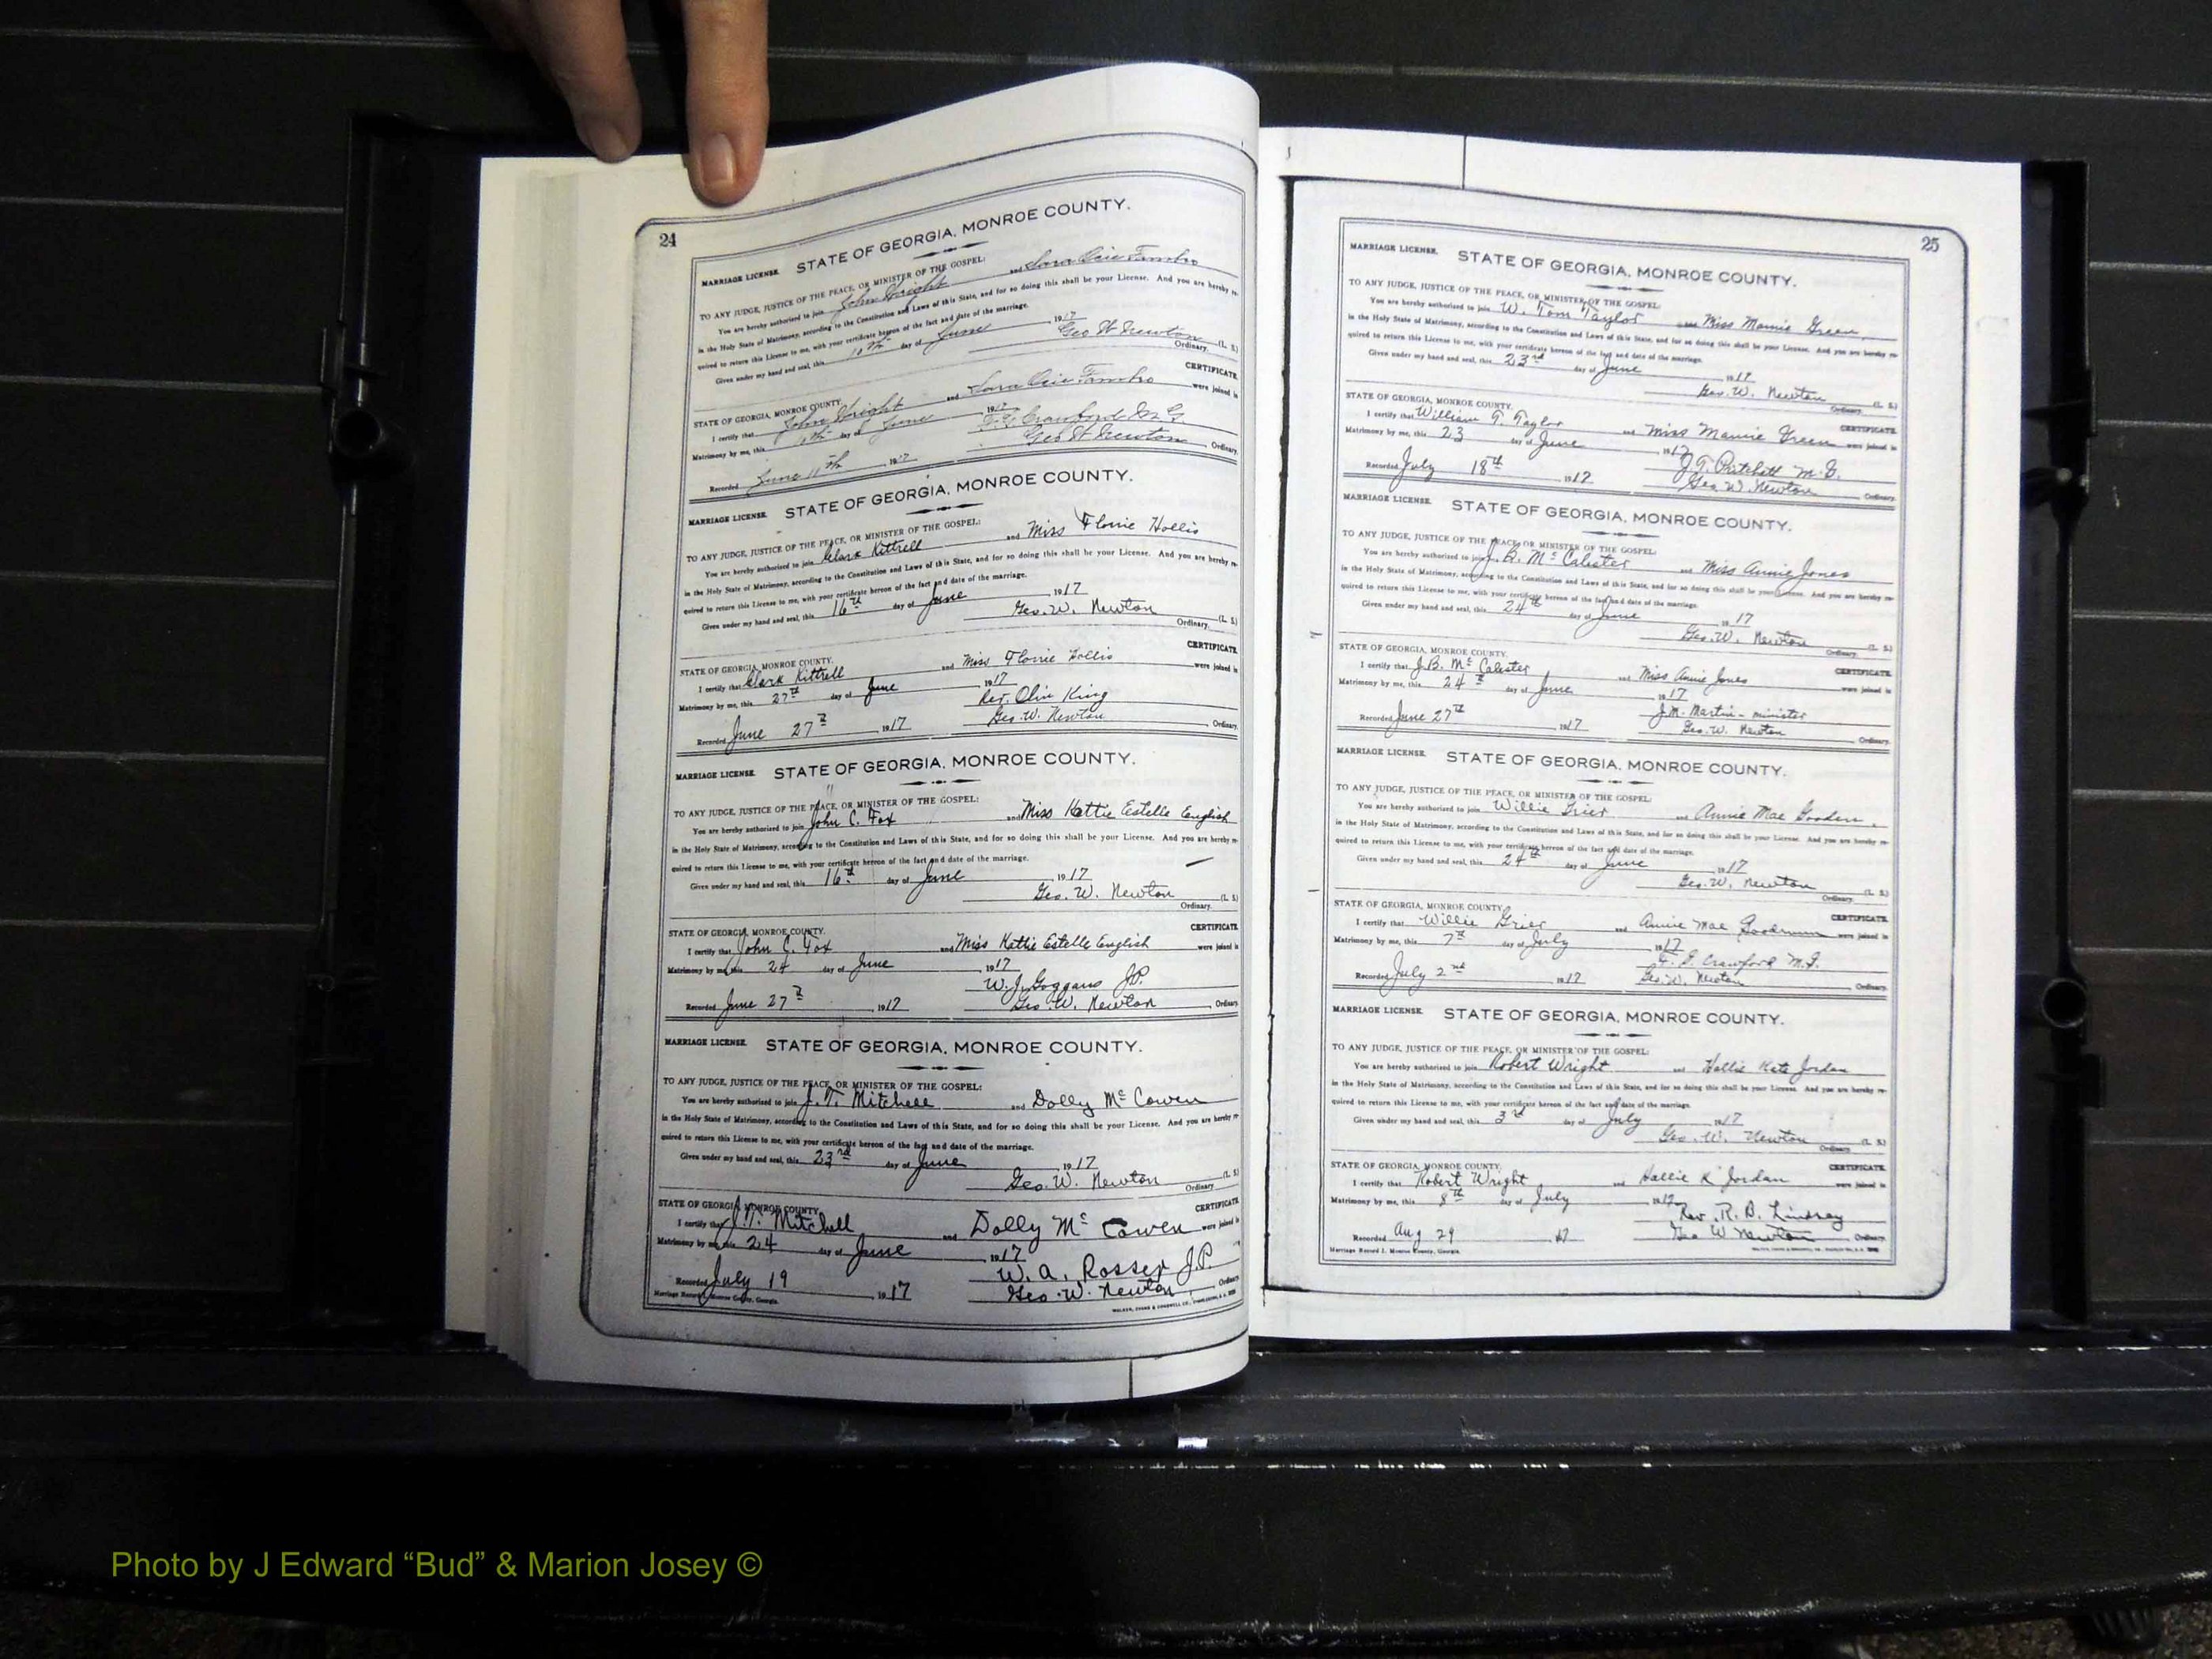 24
MARRIAGE LICENSE. STATE OF GEORGIA, MONROE COUNTY.
TO ANY JUDGE, JUSTICE OF THE PEACE, OR MINISTER OF THE GOSPEL:
You are hereby authorized to join John Wright and
in the Holy State of Matrimony, according to the Constitution and Laws of this State, and for so doing this shall be your License. And you are hereby re-
quired to return this License to me, with your certificate hereon of the fact and date of the marriage.
Given under my hand and seal, this 10th day of June 1917
Geo W Newton (L. S.)
Ordinary.
CERTIFICATE.
STATE OF GEORGIA, MONROE COUNTY.
I certify that John Wright and were joined in
Matrimony by me, this 10th day of June 1917
Crawford M G.
Recorded June 11th 1917 Geo W Newton Ordinary.
MARRIAGE LICENSE. STATE OF GEORGIA, MONROE COUNTY.
TO ANY JUDGE, JUSTICE OF THE PEACE, OR MINISTER OF THE GOSPEL:
You are hereby authorized to join Clark Kittrell and Miss Florrie Hollis
in the Holy State of Matrimony, according to the Constitution and Laws of this State, and for so doing this shall be your License. And you are hereby re-
quired to return this License to me, with your certificate hereon of the fact and date of the marriage.
Given under my hand and seal, this 16th day of June 1917
Geo. W. Newton (L. S.)
Ordinary.
CERTIFICATE.
STATE OF GEORGIA, MONROE COUNTY.
I certify that Clark Kittrell and Miss Florrie Hollis were joined in
Matrimony by me, this 27th day of June 1917
Rev. Olin King
Recorded June 27th 1917 Geo. W. Newton Ordinary.
MARRIAGE LICENSE. STATE OF GEORGIA, MONROE COUNTY.
TO ANY JUDGE, JUSTICE OF THE PEACE, OR MINISTER OF THE GOSPEL:
You are hereby authorized to join John C. Fox and Miss Hattie Estelle English
in the Holy State of Matrimony, according to the Constitution and Laws of this State, and for so doing this shall be your License. And you are hereby re-
quired to return this License to me, with your certificate hereon of the fact and date of the marriage.
Given under my hand and seal, this 16th day of June 1917
Geo. W. Newton (L. S.)
Ordinary.
CERTIFICATE.
STATE OF GEORGIA, MONROE COUNTY.
I certify that John C. Fox and Miss Hattie Estelle English were joined in
Matrimony by me, this 24 day of June 1917
W. J. Goggans J.P.
Recorded June 27th 1917 Geo. W. Newton Ordinary.
MARRIAGE LICENSE. STATE OF GEORGIA, MONROE COUNTY.
TO ANY JUDGE, JUSTICE OF THE PEACE, OR MINISTER OF THE GOSPEL:
You are hereby authorized to join J. T. Mitchell and Dolly McCowen
in the Holy State of Matrimony, according to the Constitution and Laws of this State, and for so doing this shall be your License. And you are hereby re-
quired to return this License to me, with your certificate hereon of the fact and date of the marriage.
Given under my hand and seal, this 23rd day of June 1917
Geo. W. Newton (L. S.)
Ordinary.
CERTIFICATE.
STATE OF GEORGIA, MONROE COUNTY.
I certify that J. T. Mitchell and Dolly McCowen were joined in
Matrimony by me, this 24 day of June 1917
W. A. Rosser J.P.
Recorded July 19 1917 Geo. W. Newton Ordinary.
Marriage Record I. Monroe County, Georgia.
25
MARRIAGE LICENSE. STATE OF GEORGIA, MONROE COUNTY.
TO ANY JUDGE, JUSTICE OF THE PEACE, OR MINISTER OF THE GOSPEL:
You are hereby authorized to join W. Tom Taylor and Miss Mamie Green
in the Holy State of Matrimony, according to the Constitution and Laws of this State, and for so doing this shall be your License. And you are hereby re-
quired to return this License to me, with your certificate hereon of the fact and date of the marriage.
Given under my hand and seal, this 23rd day of June 1917
Geo. W. Newton (L. S.)
Ordinary.
CERTIFICATE.
STATE OF GEORGIA, MONROE COUNTY.
I certify that William T. Taylor and Miss Mamie Green were joined in
Matrimony by me, this 23 day of June 1917
J. T. Pritchett M. G.
Recorded July 18th 1917 Geo. W. Newton Ordinary.
MARRIAGE LICENSE. STATE OF GEORGIA, MONROE COUNTY.
TO ANY JUDGE, JUSTICE OF THE PEACE, OR MINISTER OF THE GOSPEL:
You are hereby authorized to join J. B. McCalester and Miss Annie Jones
in the Holy State of Matrimony, according to the Constitution and Laws of this State, and for so doing this shall be your License. And you are hereby re-
quired to return this License to me, with your certificate hereon of the fact and date of the marriage.
Given under my hand and seal, this 24th day of June 1917
Geo. W. Newton (L. S.)
Ordinary.
CERTIFICATE.
STATE OF GEORGIA, MONROE COUNTY.
I certify that J. B. McCalester and Miss Annie Jones were joined in
Matrimony by me, this 24th day of June 1917
J. M. Martin - minister
Recorded June 27th 1917 Geo. W. Newton Ordinary.
MARRIAGE LICENSE. STATE OF GEORGIA, MONROE COUNTY.
TO ANY JUDGE, JUSTICE OF THE PEACE, OR MINISTER OF THE GOSPEL:
You are hereby authorized to join Willie Grier and Annie Mae
in the Holy State of Matrimony, according to the Constitution and Laws of this State, and for so doing this shall be your License. And you are hereby re-
quired to return this License to me, with your certificate hereon of the fact and date of the marriage.
Given under my hand and seal, this 24th day of June 1917
Geo. W. Newton (L. S.)
Ordinary.
CERTIFICATE.
STATE OF GEORGIA, MONROE COUNTY.
I certify that Willie Grier and Annie Mae Goodrum were joined in
Matrimony by me, this 7th day of July 1917
Crawford M. G.
Recorded July 2nd 1917 Geo. W. Newton Ordinary.
MARRIAGE LICENSE. STATE OF GEORGIA, MONROE COUNTY.
TO ANY JUDGE, JUSTICE OF THE PEACE, OR MINISTER OF THE GOSPEL:
You are hereby authorized to join Robert Wright and Hallie Kate Jordan
in the Holy State of Matrimony, according to the Constitution and Laws of this State, and for so doing this shall be your License. And you are hereby re-
quired to return this License to me, with your certificate hereon of the fact and date of the marriage.
Given under my hand and seal, this 3rd day of July 1917
Geo. W. Newton (L. S.)
Ordinary.
CERTIFICATE.
STATE OF GEORGIA, MONROE COUNTY.
I certify that Robert Wright and Hallie K Jordan were joined in
Matrimony by me, this 8th day of July 1917
Rev. R. B. Lindsey
Recorded Aug 29 17 Geo W Newton Ordinary.
Marriage Record I. Monroe County, Georgia.
Photo by J Edward “Bud” & Marion Josey ©